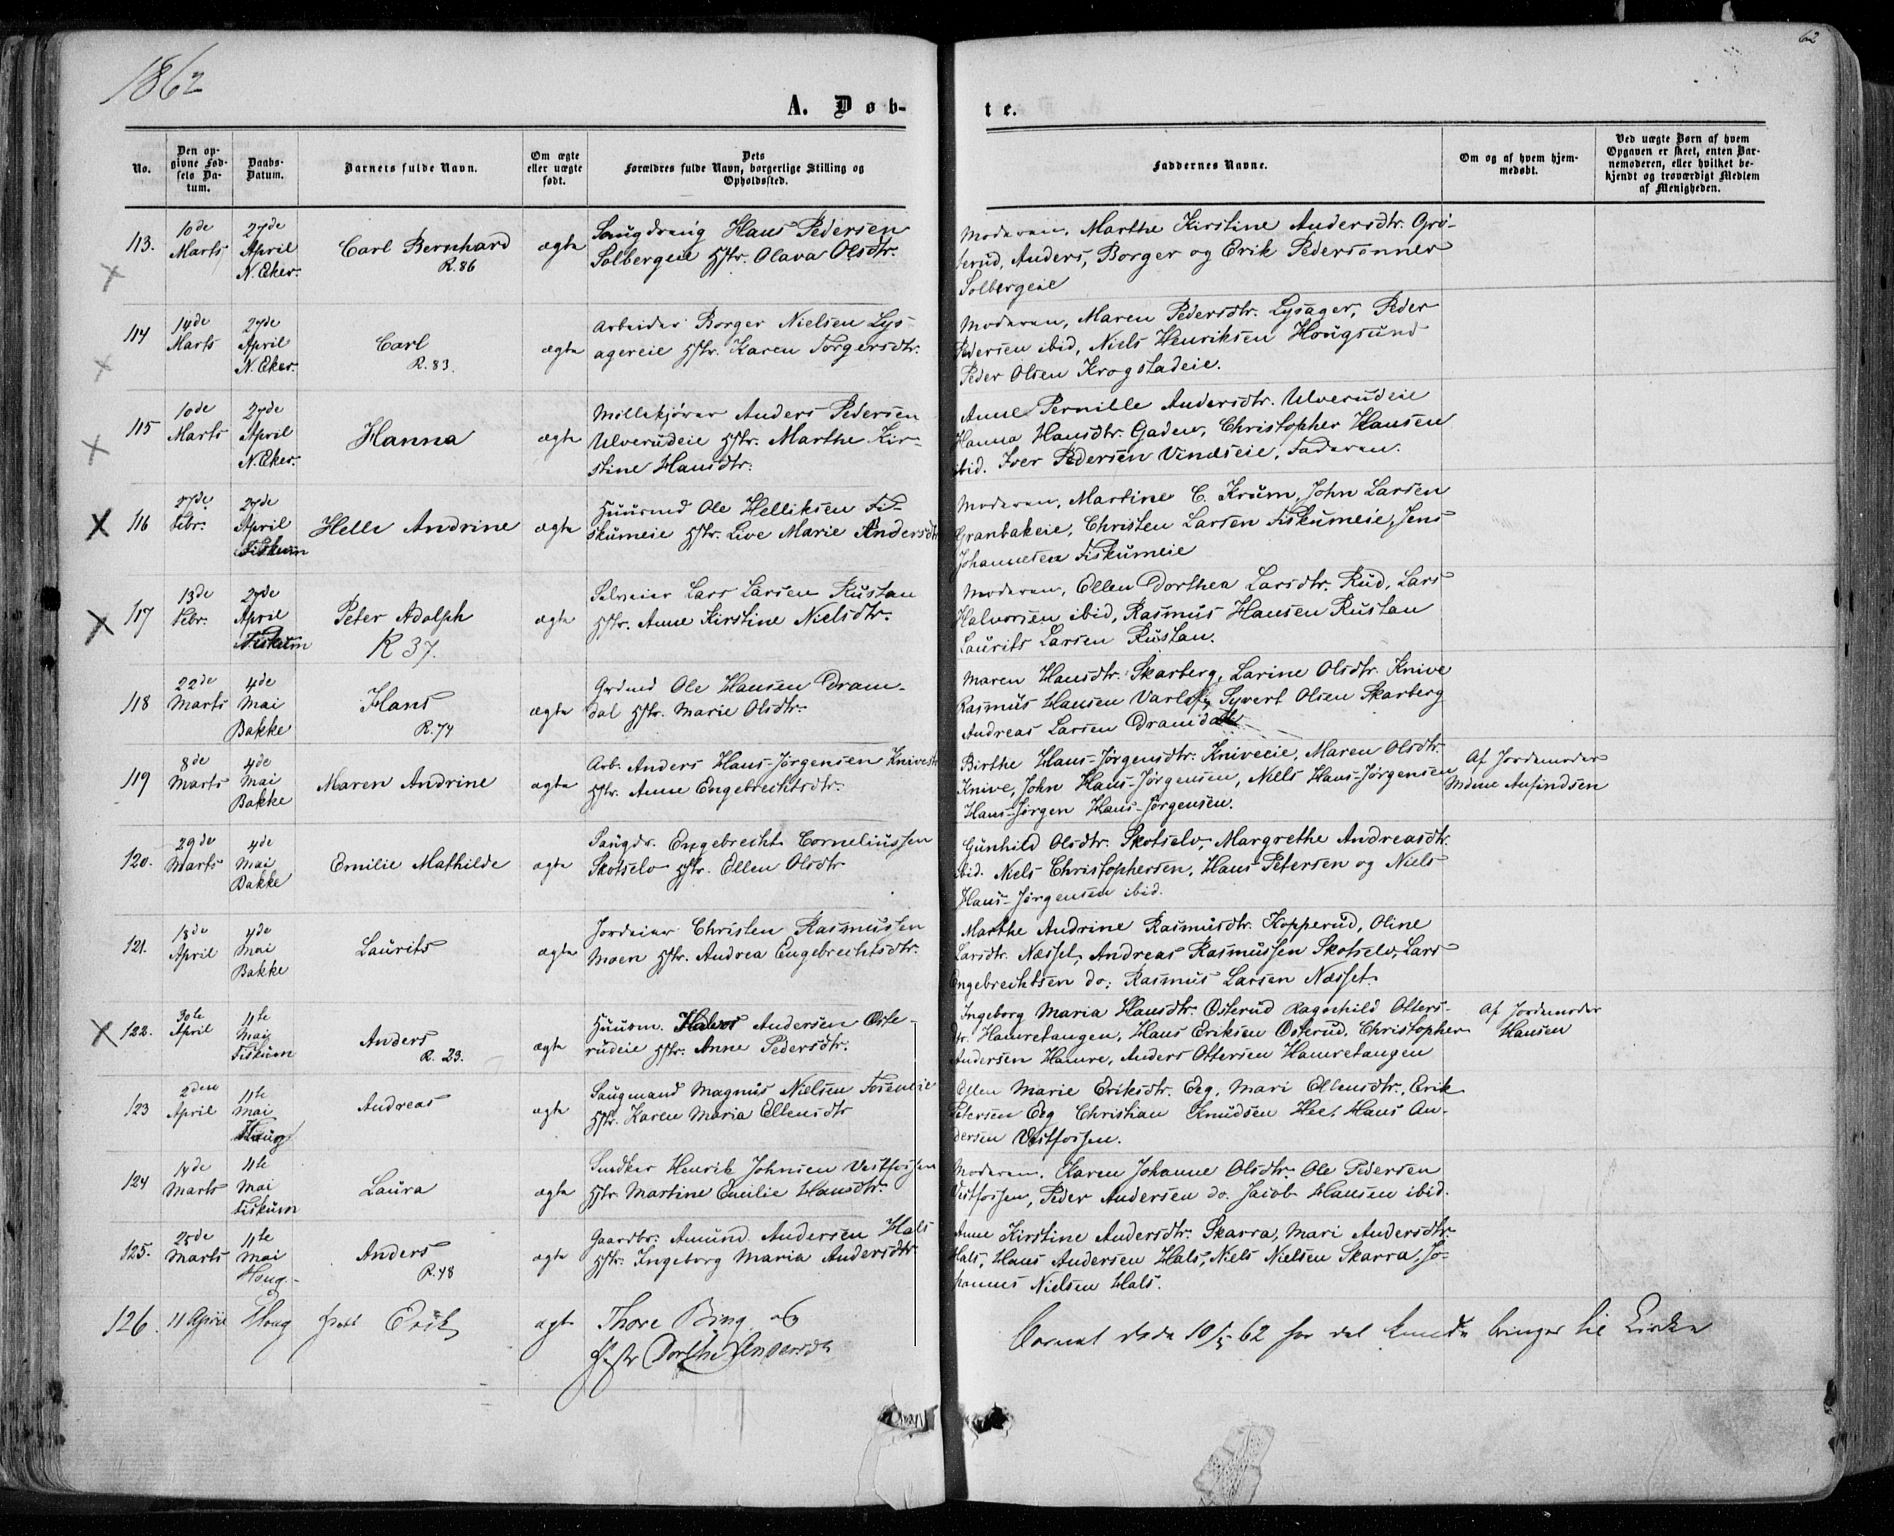 1862
62
A. Døb-
te.
No.
Den op-
givne Fød-
sels Da-
tum.
Daabs-
Datum.
Barnets fulde Navn.
Om ægte
eller uægte
født.
Dets
Forældres fulde Navn, borgerlige Stilling og
Opholdssted.
Faddernes Navne.
Om og af hvem hjem-
medøbt.
Ved uægte Børn af hvem
Opgaven er skeet, enten Bar-
nemoderen, eller hvilket be-
kjendt og troværdigt Medlem
af Menigheden.
113.
10de
Marts
27de
April
N. Eker.
Carl Bernhard
R. 86
ægte
Saugdreng Hans Pedersen
Solbergeie Hstr. Olava Olsdtr.
Moderen, Marthe Kirstine Andersdtr. Grø-
terud, Anders, Borger og Erik Pedersønner
Solbergeie
114
14de
Marts
27de
April
N. Eker.
Carl
R. 83.
ægte
Arbeider Borger Nielsen Lys-
agereie Hstr. Karen Torgersdtr.
Moderen, Maren Pedersdtr. Lysager, Peder
Pedersen ibid, Niels Henriksen Hougsund
Peder Olsen Krogstadeie.
115
10de
Marts
27de
April
N. Eker.
Hanna
ægte
Millekjører Anders Pedersen
Ulverudeie Hstr. Marthe Kir-
stine Hansdtr.
Anne Pernille Andersdtr. Ulverudeie
Hanna Hansdtr. Gaden, Christopher Hansen
ibid. Iver Pedersen Vindseie, Faderen.
116
27de
Febr.
27de
April
Fiskum
Helle Andrine
ægte
Huusmd Ole Helliksen Fi-
skumeie Hstr. Live Marie Andersdtr
Moderen, Martine C. Krum, John Larsen
Granbakeie, Christen Larsen Fiskumeie, Jens
Johannesen Fiskumeie
117
13de
Febr.
27de
April
Fiskum
Peter Adolph
R 37.
ægte
Selveier Lars Larsen Rustan
Hstr. Anne Kirstine Nielsdtr.
Moderen, Ellen Dorthea Larsdtr. Rud, Lars
Halvorsen ibid, Rasmus Hansen Rustan
Laurits Larsen Rustan.
118
22de
Marts
4de
Mai
Bakke
Hans
R. 74
ægte
Grdmd Ole Hansen Dram-
dal Hstr. Marie Olsdtr.
Maren Hansdtr. Skarberg, Larine Olsdtr. Knive
Rasmus Hansen Varlo, Syvert Olsen Skarberg
Andreas Larsen Dramdal
119
8de
Marts
4de
Mai
Bakke
Maren Andrine
ægte
Arb. Anders Hans-Jørgensen Knive
Hstr. Anne Engebrechtsdtr.
Birthe Hans-Jørgensdtr. Kniveeie, Maren Olsdtr.
Knive, John Hans-Jørgensen, Niels Hans-Jørgensen
Hans-Jørgen Hans-Jørgensen.
Af Jordemoder
Anfindsen
120.
29de
Marts
4de
Mai
Bakke
Emilie Mathilde
ægte
Saugdr. Engebrecht Corneliussen
Skotselv Hstr. Ellen Olsdtr
Gunhild Olsdtr. Skotselv, Margrethe Andreasdtr.
ibid. Niels Christophersen, Hans Petersen og Niels
Hans-Jørgensen ibid.
121.
18de
April
4de
Mai
Bakke
Laurits
ægte
Jordeier Christen Rasmussen
Moen Hstr. Andrea Engebrechtsdtr.
Marthe Andrine Rasmusdtr. Kopperud, Oline
Larsdtr. Næsset, Andreas Rasmussen Skotselv, Lars
Engebrechtsen do: Rasmus Larsen Næsset.
122.
30te
April
11te
Mai
Fiskum
Anders
R. 23.
ægte
Huusm. Halvor Andersen Øste-
rudeie Hstr. Anne Pedersdtr.
Ingeborg Maria Hansdtr. Østerud Ragnhild Otters-
dtr. Hamretangen, Hans Eriksen Østerud, Christopher
Andersen Hamre, Anders Ottersen Hamretangen
Af Jordemoder
Hansen
123
2den
April
11te
Mai
Houg
Andreas
ægte
Saugmand Magnus Nielsen Foseneie
Hstr. Karen Maria Ellensdtr
Ellen Marie Eriksdtr. Eeg, Mari Ellensdtr., Erik
Petersen Eeg Christian Knudsen Hee, Hans An-
dersen Vestfossen.
124
14de
Marts
11te
Mai
Fiskum
Laura
ægte
Snedker Henrik Johnsen Vestfossen
Hstr. Martine Emilie Hansdtr.
Moderen, Karen Johanne Olsdtr. Ole Pedersen
Vestfossen, Peder Andersen do. Jacob Hansen ibid.
125.
25de
Marts
11te
Mai
Houg
Anders
R. 48
ægte
Gaardbr. Amund Andersen Hals
Hstr. Ingeborg Maria Andersdtr
Anne Kirstine Andersdtr. Skarra, Mari Andersdtr.
Hals, Hans Andersen Hals, Niels Nielsen Skarra, Jo-
hannes Nielsen Hals.
126.
11 April
Houg
Erik
ægte
Thore Bing og
Hstr Dorthe
Barnet døde 10/5 62 før det kunde bringes til Kirken